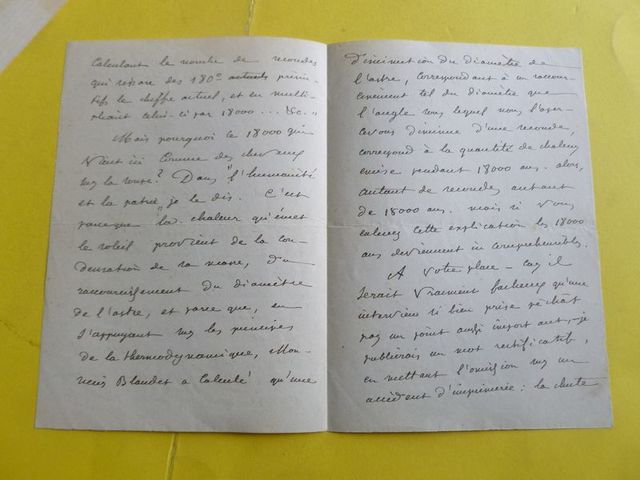 Calculant le nombre de secondes
qui sépare des 180° actuels primi-
tifs le chiffre actuel, et en multi-
pliant celui-ci par 18000 ... &c. "
Mais pourquoi ce 18000 qui
vient ici comme des cheveux
sur la soupe? Dans "l'humanité
et la patrie" je le dis. C'est
parceque la chaleur qu'émet
le soleil provient de la con-
densation de sa masse, du
raccourcissement du diamètre
de l'astre, et parce que, en
s'appuyant sur les principes
de la thermodynamique, Mon-
sieur Blandet a calculé qu'une
Diminution du diamètre de
l'astre, correspondant à un raccour-
cissement tel du diamètre que
l'angle sous lequel nous l'aper-
cevons diminue d'une seconde,
correspond à la quantité de chaleur
émise pendant 18000 ans. alors,
autant de secondes autant
de 18000 ans. mais si vous
enlevez cette explication les 18000
ans deviennent incompréhensibles.
A votre place - car il
serait vraiment facheux qu'une
interview si bien prise péchât
par un point aussi important, - je
publierais un mot rectificatif,
en mettant l'omission sur un
accident d'imprimerie: la chute